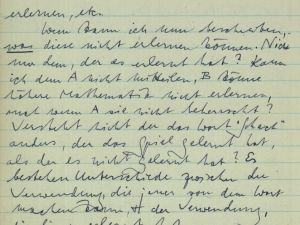 erlernen, etc.
Wem kann ich nun beschreiben,
was diese nicht erlernen können. Nur
nur dem, der es erlernt hat? Kann
ich dem A nicht mitteilen, B könne
höhere Mathematik nicht erlernen,
weil A sie nicht beherrscht?
Versteht nicht der das Wort "Schach"
anders, der das Spiel gelernt hat,
als der es nicht gelernt hat? Es
bestehen Unterschiede zwischen der
Verwendung, die jener von dem Wort
machen kann, & der Verwendung,